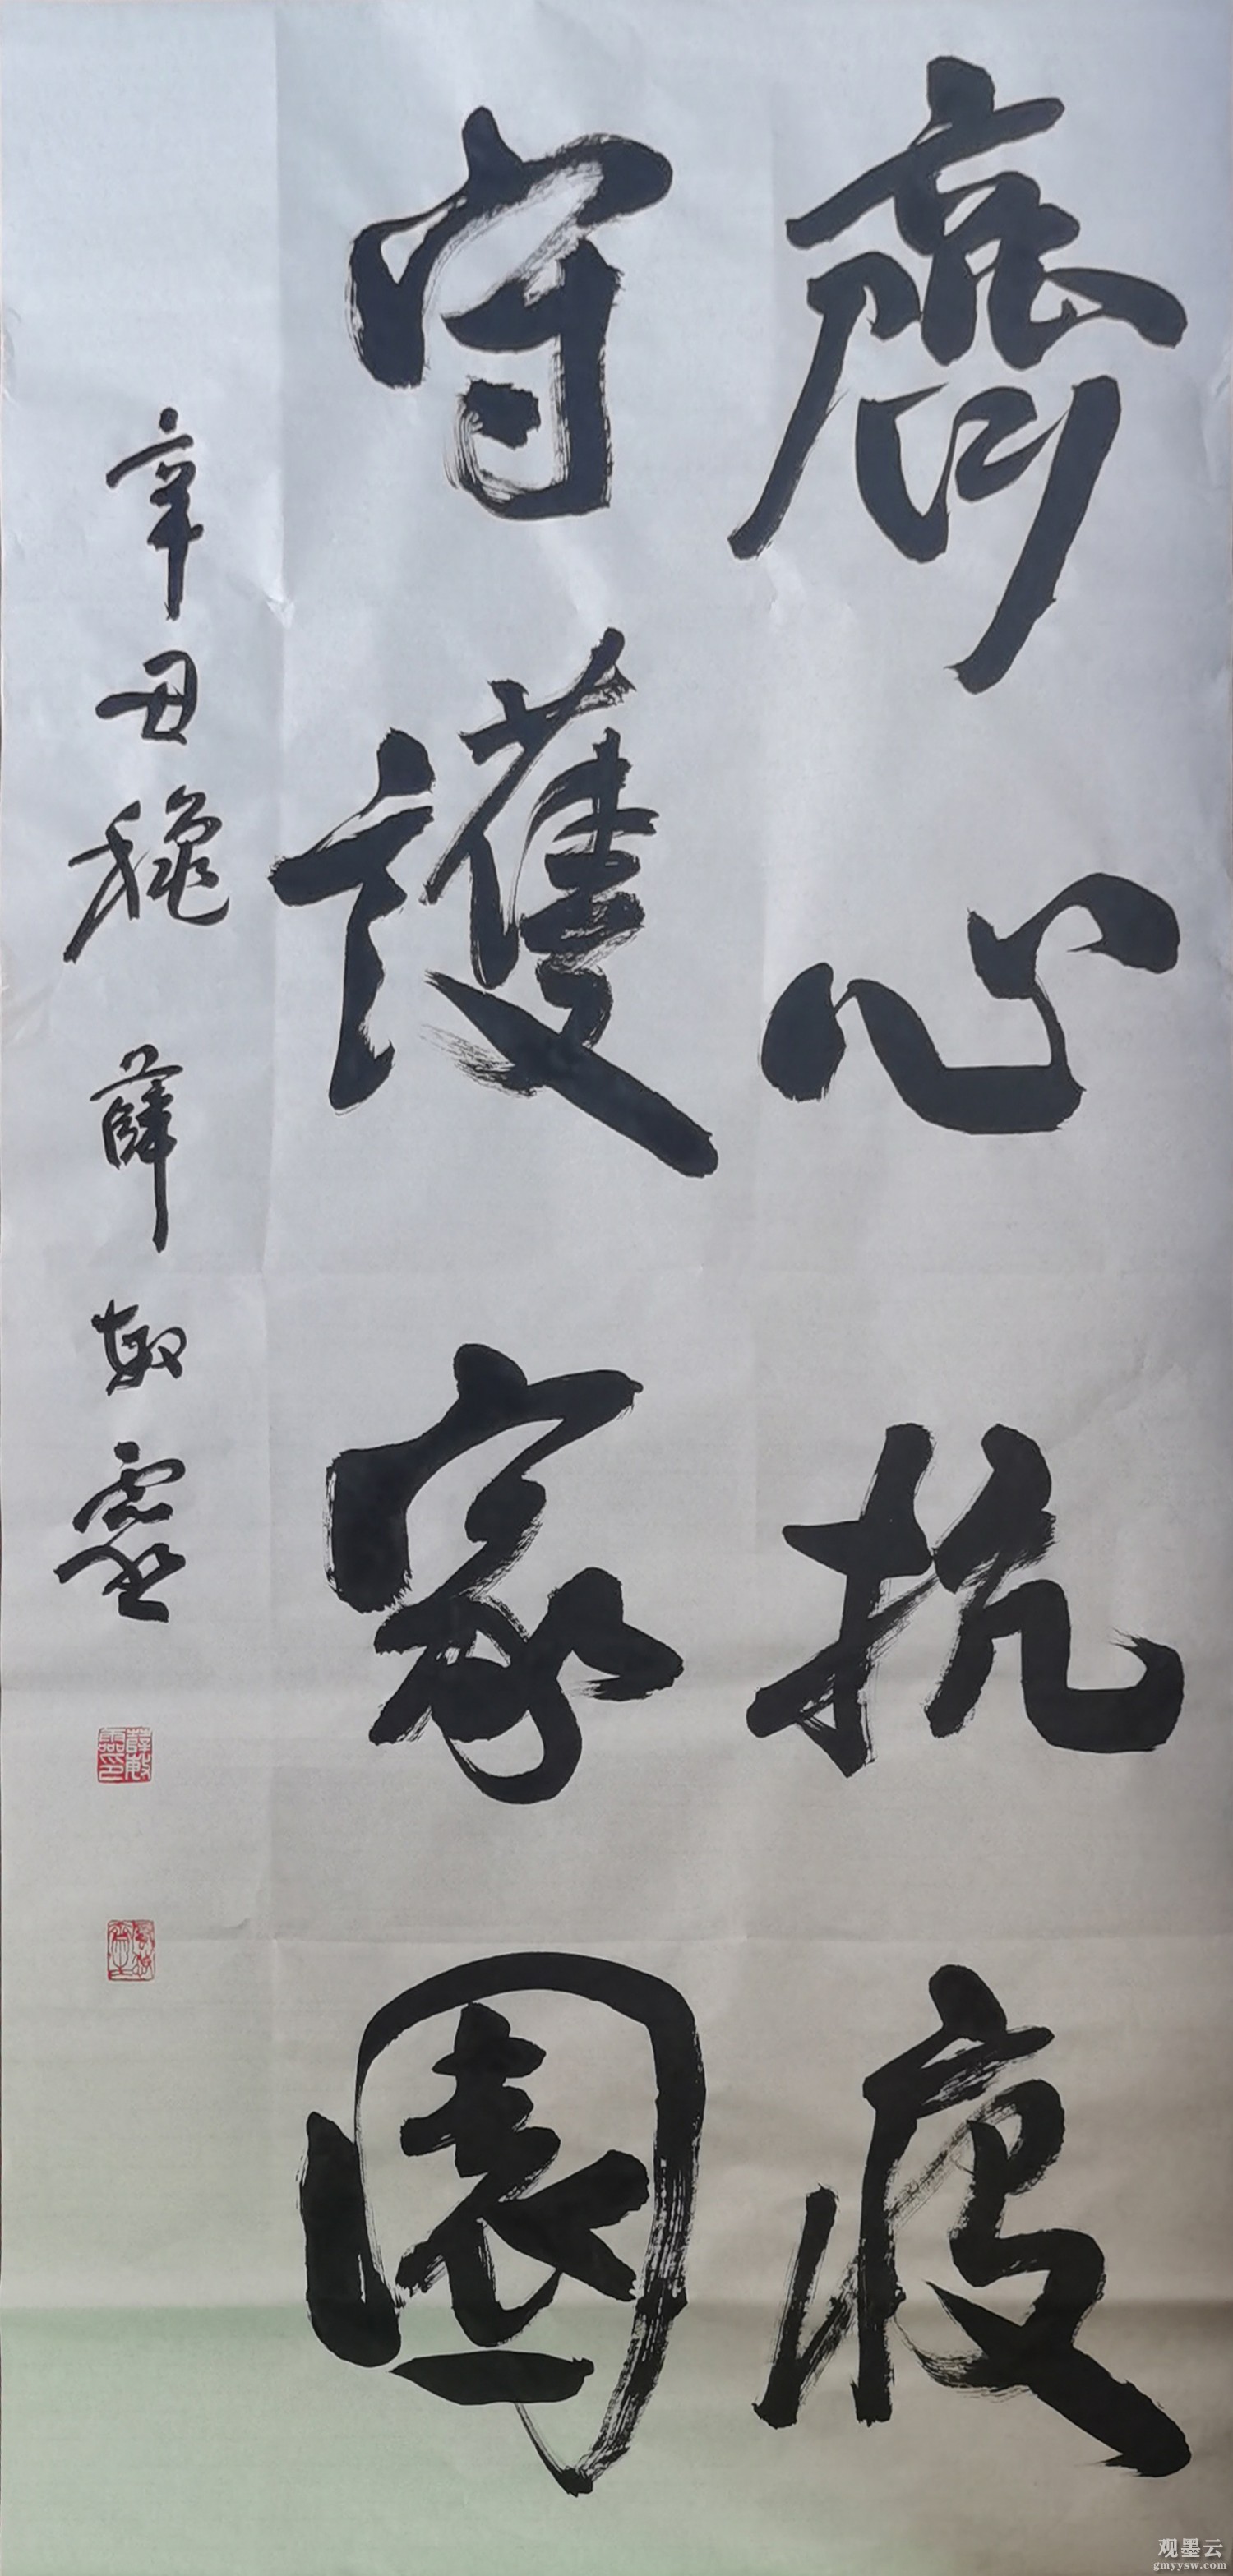 齊心抗疫
守護家園
辛丑穐 薛敏靈
薛敏靈印
观墨云
gmyysw.com